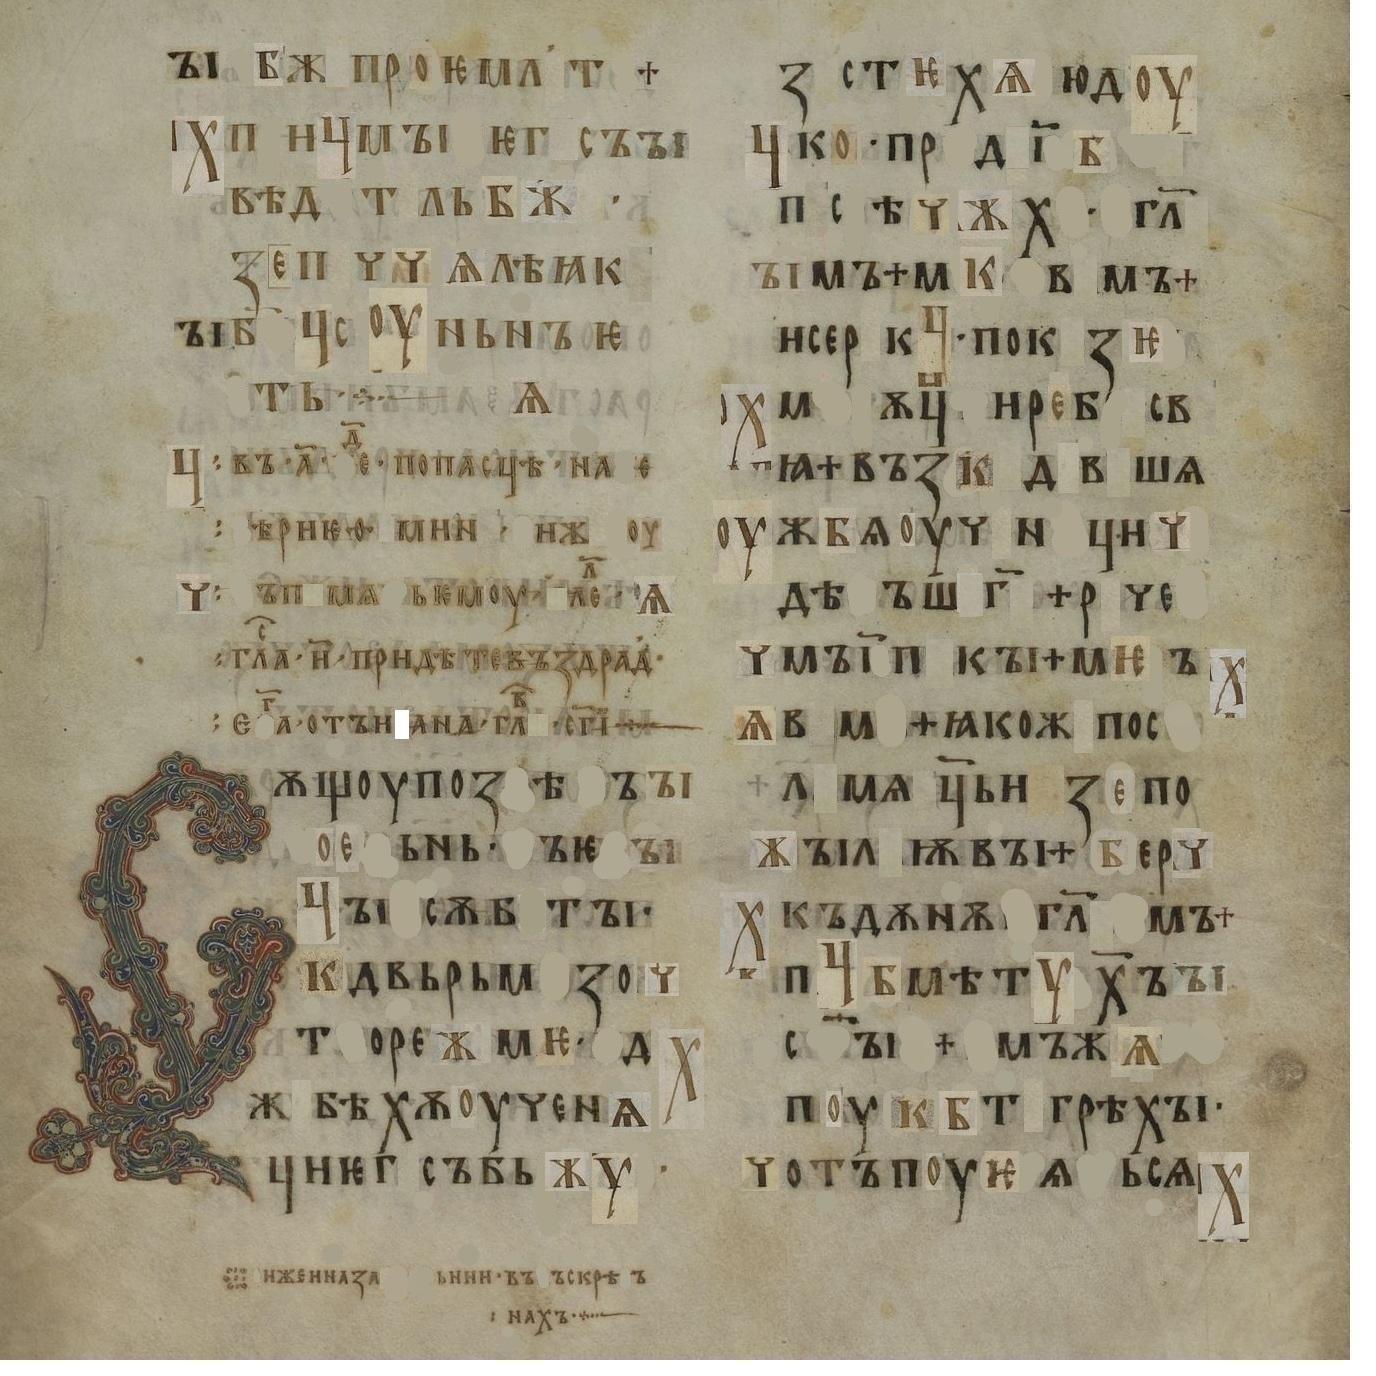 ЪІ БЖ ПРОѤМЛ Т +
ХП НЧМЪІ ѤГ СЪЪІ
ВѢД Т ЛЬБЖ ·
ЗЕП ҮҮ ѦЛѢꙖК
ЪІБ ЧС ОУ НЬНЪ Ѥ
ТЬ · Ѧ
Ч : ВЪ · А · Е · ПОПАСЦѢ · НА Е
: ѢРНѤО МНН · НЖ ОУ
Ү : ЪП МА ЬѤМОУ · ЛЕ · Ѧ
: ГЛА · Н · ПРНДѢТЕВЪЗДРАД ·
: Е А · ОТЪН АНА · ГЛ СГІ
ѪЩОУПОЗ Ѣ ЪЪІ
ОЕ ЬНЬ · ЪѤ ЪІ
ЧЪІ СѪБ ТЪІ ·
К ДВЬРЬМ ЗОҮ
Т ОРЕЖ МѤ · Д Х
Ж БѢХѪОУҮЕНѦ
ЦНѤГ СЪБЬ ЖУ ·
НЖЕННАЗА ЬНИН · ВЪ ЪСКРѢ Ъ
: НАХЪ ·
З СТѤХѦ ЮДОУ
ЧКО · ПР Д Г Б
П С ѢҮЖХ · ГЛ
ЪІМЪ+М К В МЪ+
НСЕР К Ч · ПОК ЗѤ
ХМ ѪЦ НРЕБ СВ
Ꙗ+ВЪЗК Д В ШѦ
ОУЖБѦОУҮ Н ЦНҮ
ДѢ ЪШ Г +Р ҮЕ
ҮМЪІП КЪІ+МѤ Ъ Х
ѦВ М +ꙖКОЖ ПОС
+Л МѦ ЦЬН ЗЕПО
ЖЪІЛ ѬВЪІ+ БЕРҮ
Х КЪДѪНѪ ГЛ МЪ+
П ЧБМѢТУ ХЪЪІ
С ЪІ + МЪЖѦ
ПОУ К Б Т ГРѢХЪІ ·
ҮОТЪПОУѤ Ѧ ЬСѦ Х